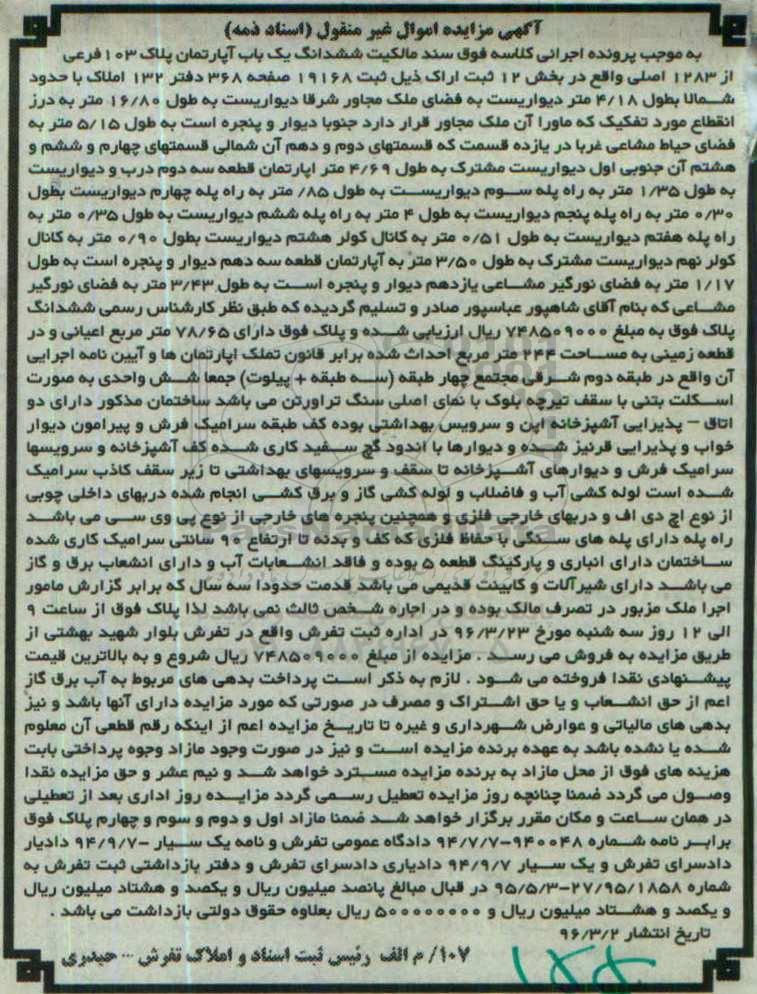 آگهی مزایده اموال غیر منقول (اسناد ذمه)
به موجب پرونده اجرائی کلاسه فوق سند مالکیت ششدانگ یک باب آپارتمان پلاک ۱۰۳ فرعی
از ۱۲۸۳ اصلی واقع در بخش ۱۲ ثبت اراک ذیل ثبت ۱۹۱۶۸ صفحه ۳۶۸ دفتر ۱۳۲ املاک با حدود
شمالا بطول ۴/۱۸ متر دیواریست به فضای ملک مجاور شرقا دیواریست به طول ۱۶/۸۰ متر به درز
انقطاع مورد تفکیک که ماورا آن ملک مجاور قرار دارد جنوبا دیوار و پنجره است به طول ۵/۱۵ متر به
فضای حیاط مشاعی غربا در یازده قسمت که قسمتهای دوم و دهم آن شمالی قسمتهای چهارم و ششم و
هشتم آن جنوبی اول دیواریست مشترک به طول ۴/۶۹ متر اپارتمان قطعه سه دوم درب و دیواریست
به طول ۱/۳۵ متر به راه پله سوم دیواریست به طول ۸۵/ متر به راه پله چهارم دیواریست بطول
۰/۳۰ متر به راه پله پنجم دیواریست به طول ۴ متر به راه پله ششم دیواریست به طول ۰/۳۵ متر به
راه پله هفتم دیواریست به طول ۰/۵۱ متر به کانال کولر هشتم دیواریست بطول ۰/۹۰ متر به کانال
کولر نهم دیواریست مشترک به طول ۳/۵۰ متر به آپارتمان قطعه سه دهم دیوار و پنجره است به طول
۱/۱۷ متر به فضای نورگیر مشاعی یازدهم دیوار و پنجره است به طول ۳/۴۳ متر به فضای نورگیر
مشاعی که بنام آقای شاهپور عباسپور صادر و تسلیم گردیده که طبق نظر کارشناس رسمی ششدانگ
پلاک فوق به مبلغ ۷۴۸۵۰۹۰۰۰ ریال ارزیابی شده و پلاک فوق دارای ۷۸/۶۵ متر مربع اعیانی و در
قطعه زمینی به مساحت ۲۴۴ متر مربع احداث شده برابر قانون تملک اپارتمان ها و آیین نامه اجرایی
آن واقع در طبقه دوم شرقی مجتمع چهار طبقه (سه طبقه + پیلوت) جمعا شش واحدی به صورت
اسکلت بتنی با سقف تیرچه بلوک با نمای اصلی سنگ تراورتن می باشد ساختمان مذکور دارای دو
اتاق – پذیرایی آشپزخانه اپن و سرویس بهداشتی بوده کف طبقه سرامیک فرش و پیرامون دیوار
خواب و پذیرایی قرنیز شده و دیوارها با اندود گچ سفید کاری شده کف آشپزخانه و سرویسها
سرامیک فرش و دیوارهای آشپزخانه تا سقف و سرویسهای بهداشتی تا زیر سقف کاذب سرامیک
شده است لوله کشی آب و فاضلاب و لوله کشی گاز و برق کشی انجام شده دربهای داخلی چوبی
از نوع اچ دی اف و دربهای خارجی فلزی و همچنین پنجره های خارجی از نوع پی وی سی می باشد
راه پله دارای پله های سنگی با حفاظ فلزی که کف و بدنه تا ارتفاع ۹۰ سانتی سرامیک کاری شده
ساختمان دارای انباری و پارکینگ قطعه ۵ بوده و فاقد انشعابات آب و دارای انشعاب برق و گاز
می باشد دارای شیرآلات و کابینت قدیمی می باشد قدمت حدودا سه سال که برابر گزارش مامور
اجرا ملک مزبور در تصرف مالک بوده و در اجاره شخص ثالث نمی باشد لذا پلاک فوق از ساعت ۹
الی ۱۲ روز سه شنبه مورخ ۹۶/۳/۲۳ در اداره ثبت تفرش واقع در تفرش بلوار شهید بهشتی از
طریق مزایده به فروش می رسد . مزایده از مبلغ ۷۴۸۵۰۹۰۰۰ ریال شروع و به بالاترین قیمت
پیشنهادی نقدا فروخته می شود . لازم به ذکر است پرداخت بدهی های مربوط به آب برق گاز
اعم از حق انشعاب و یا حق اشتراک و مصرف در صورتی که مورد مزایده دارای آنها باشد و نیز
بدهی های مالیاتی و عوارض شهرداری و غیره تا تاریخ مزایده اعم از اینکه رقم قطعی آن معلوم
شده یا نشده باشد به عهده برنده مزایده است و نیز در صورت وجود مازاد وجوه پرداختی بابت
هزینه های فوق از محل مازاد به برنده مزایده مسترد خواهد شد و نیم عشر و حق مزایده نقدا
وصول می گردد ضمنا چنانچه روز مزایده تعطیل رسمی گردد مزایده روز اداری بعد از تعطیلی
در همان ساعت و مکان مقرر برگزار خواهد شد ضمنا مازاد اول و دوم و سوم و چهارم پلاک فوق
برابر نامه شماره ۹۴۰۰۴۸-۹۴/۷/۷ دادگاه عمومی تفرش و نامه یک سیار -۹۴/۹/۷ دادیار
دادسرای تفرش و یک سیار ۹۴/۹/۷ دادیاری دادسرای تفرش و دفتر بازداشتی ثبت تفرش به
شماره ۲۷/۹۵/۱۸۵۸-۹۵/۵/۳ در قبال مبالغ پانصد میلیون ریال و یکصد و هشتاد میلیون ریال
و یکصد و هشتاد میلیون ریال و ۵۰۰۰۰۰۰۰۰۰ ریال بعلاوه حقوق دولتی بازداشت می باشد .
تاریخ انتشار ۹۶/۳/۲
۱۰۷/ م الف رئیس ثبت اسناد و املاک تفرش ... حیدری